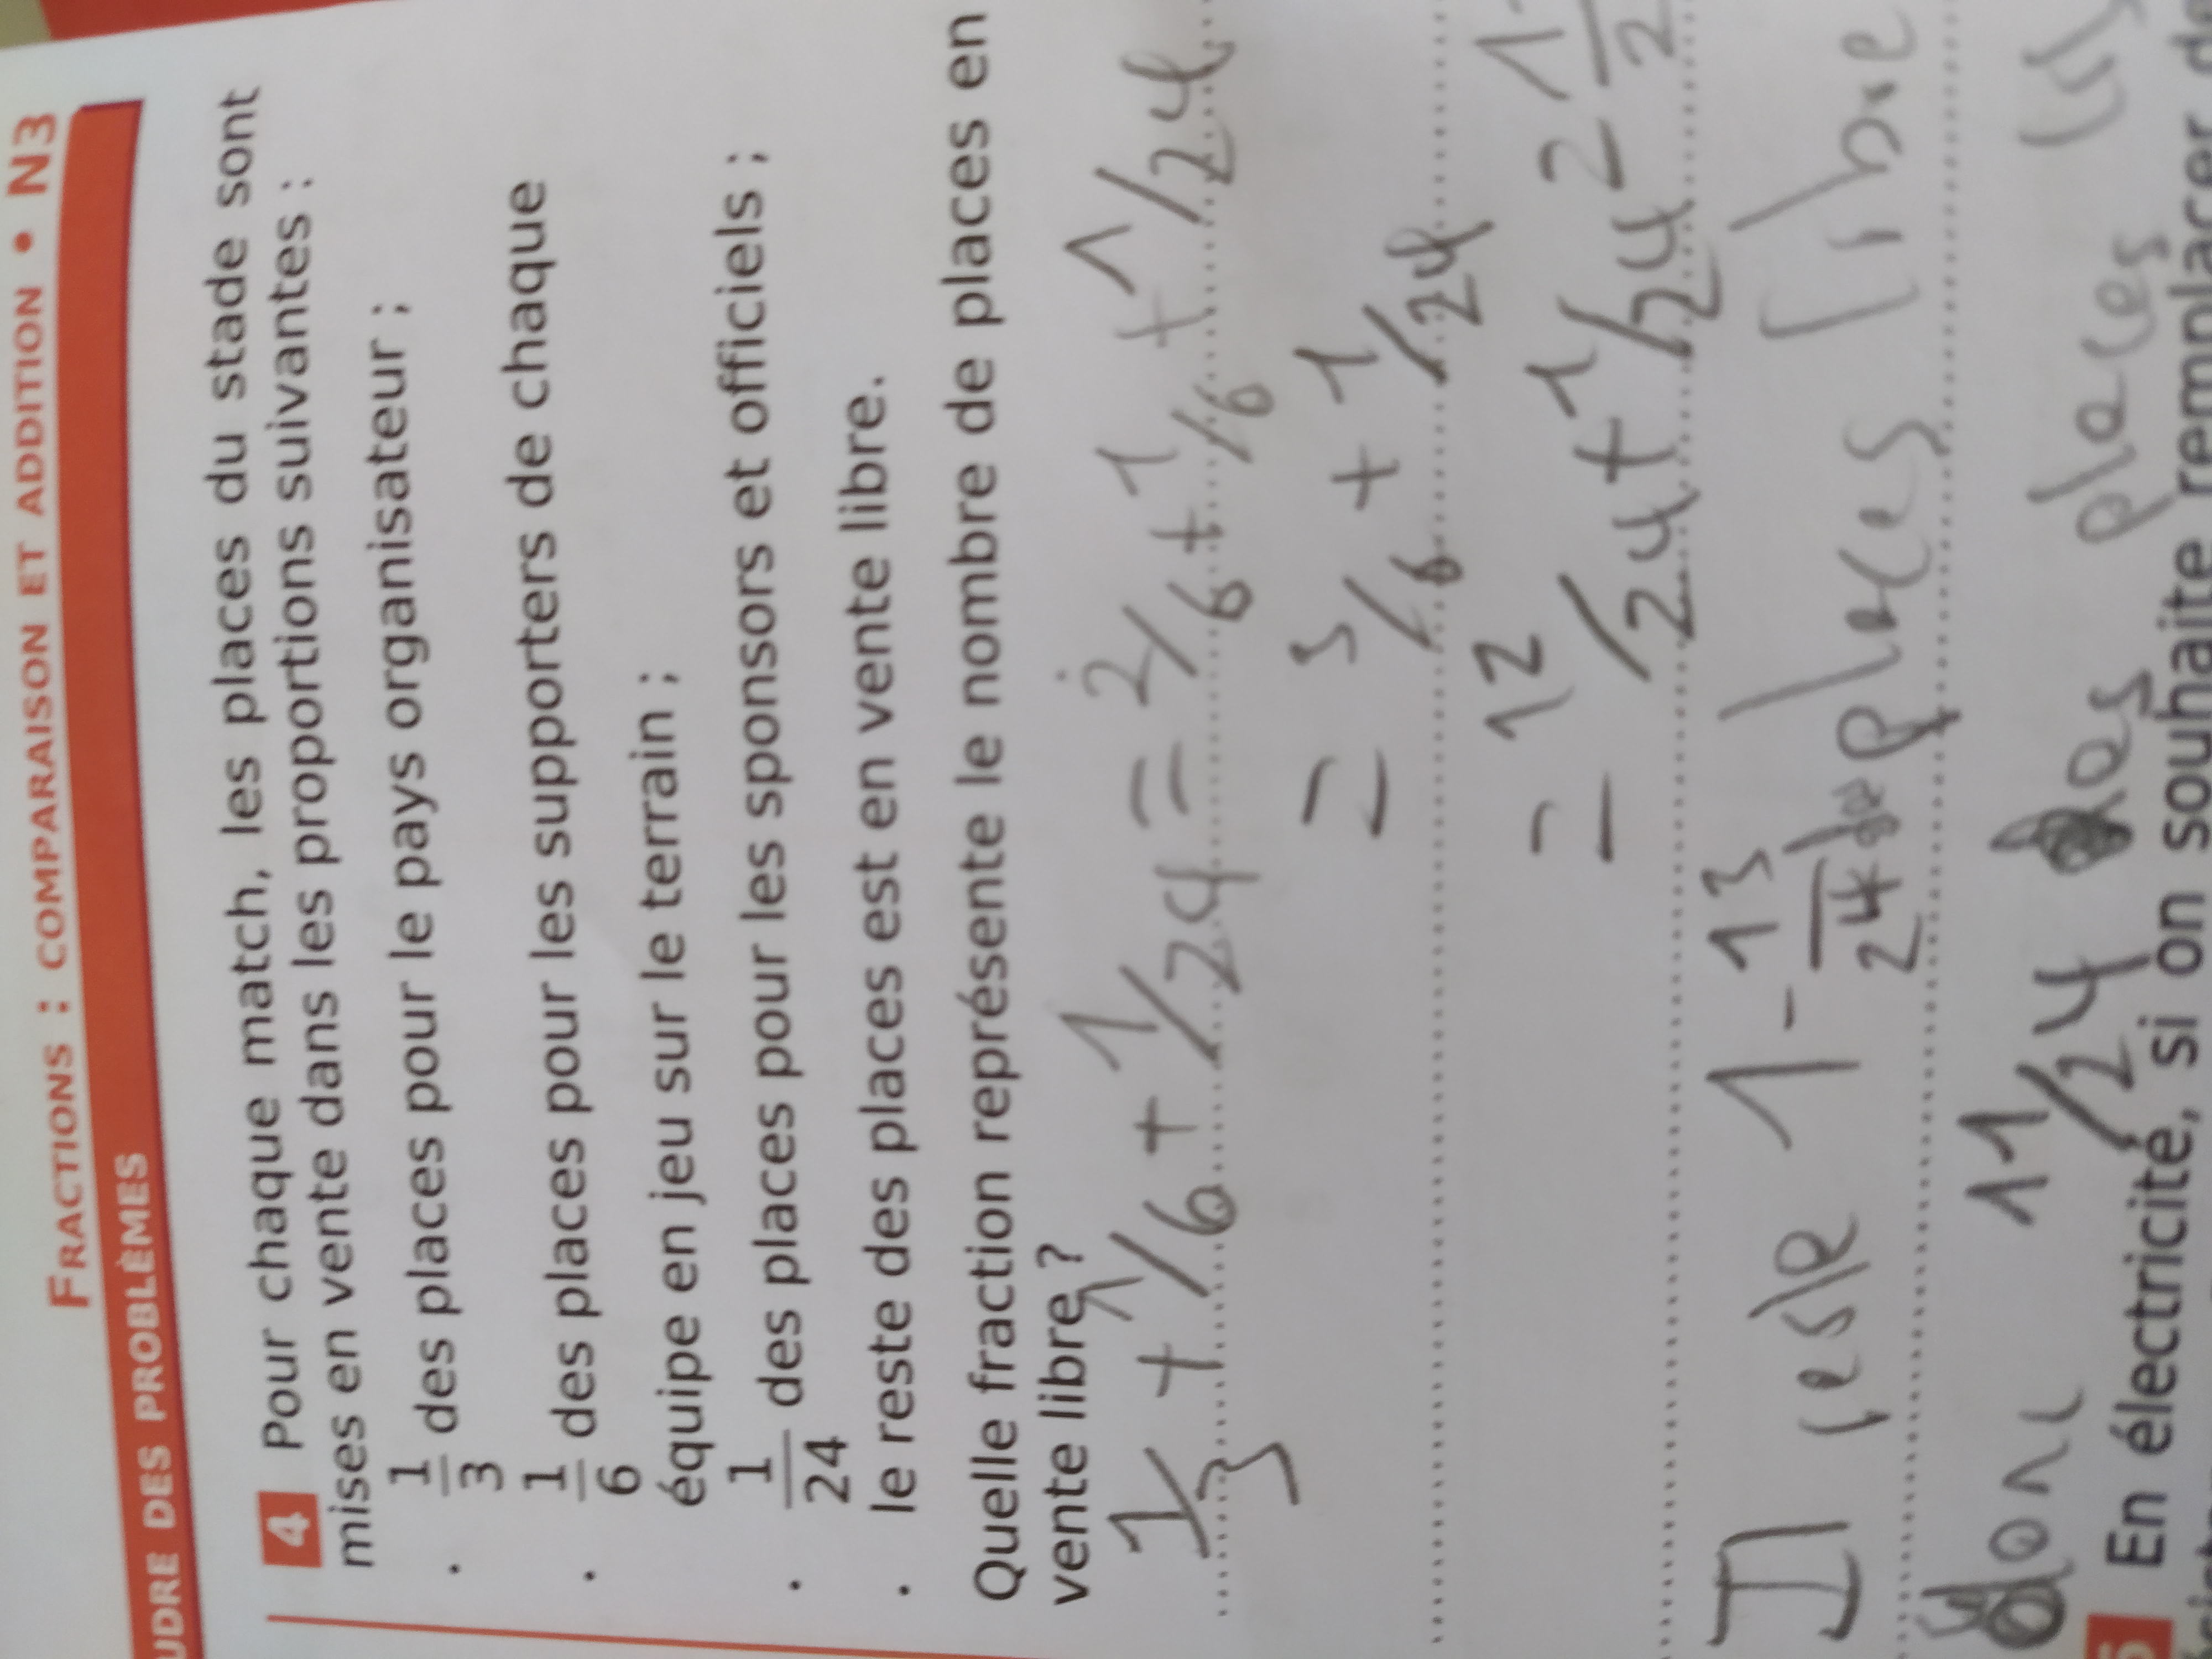 FRACTIONS : COMPARAISON ET ADDITION • N3
UDRE DES PROBLÈMES
4 Pour chaque match, les places du stade sont
mises en vente dans les proportions suivantes :
• 1/3 des places pour le pays organisateur ;
• 1/6 des places pour les supporters de chaque
équipe en jeu sur le terrain ;
• 1/24 des places pour les sponsors et officiels ;
• le reste des places est en vente libre.
Quelle fraction représente le nombre de places en
vente libre ?
1/3 + 1/6 + 1/24 = 2/6 + 1/6 + 1/24
= 3/6 + 1/24
= 12/24 + 1/24 = 1/2
Il reste 1 - 13/24 des places libre
donc 11/24 des places
En électricité, si on souhaite remplacer de